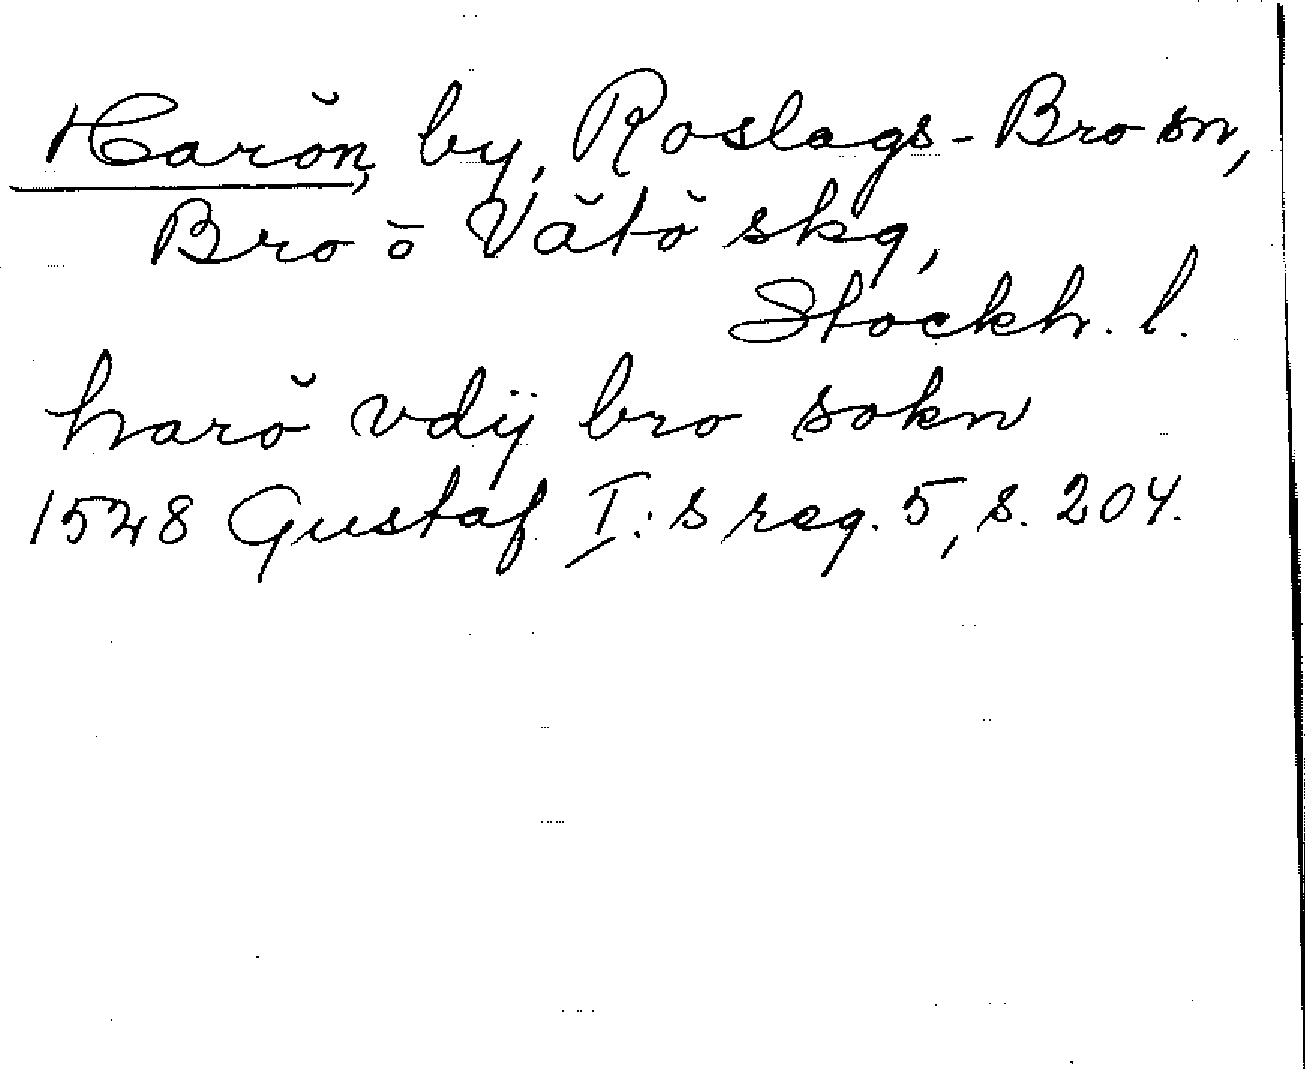 Harön, by, Roslags-Bro sn,
Bro o Vätö skg,
Stockh. l.
harö vdÿ bro sokn
1548 Gustaf I:s reg. 5, s. 204.